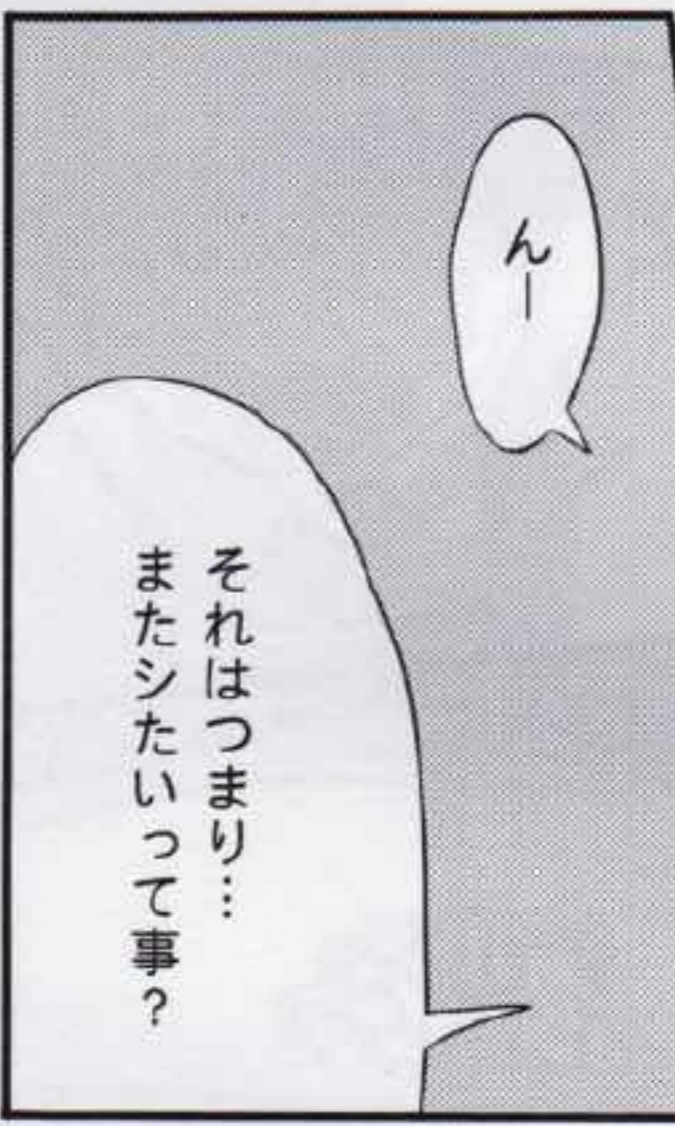 んー
それはつまり…
またシたいって事？